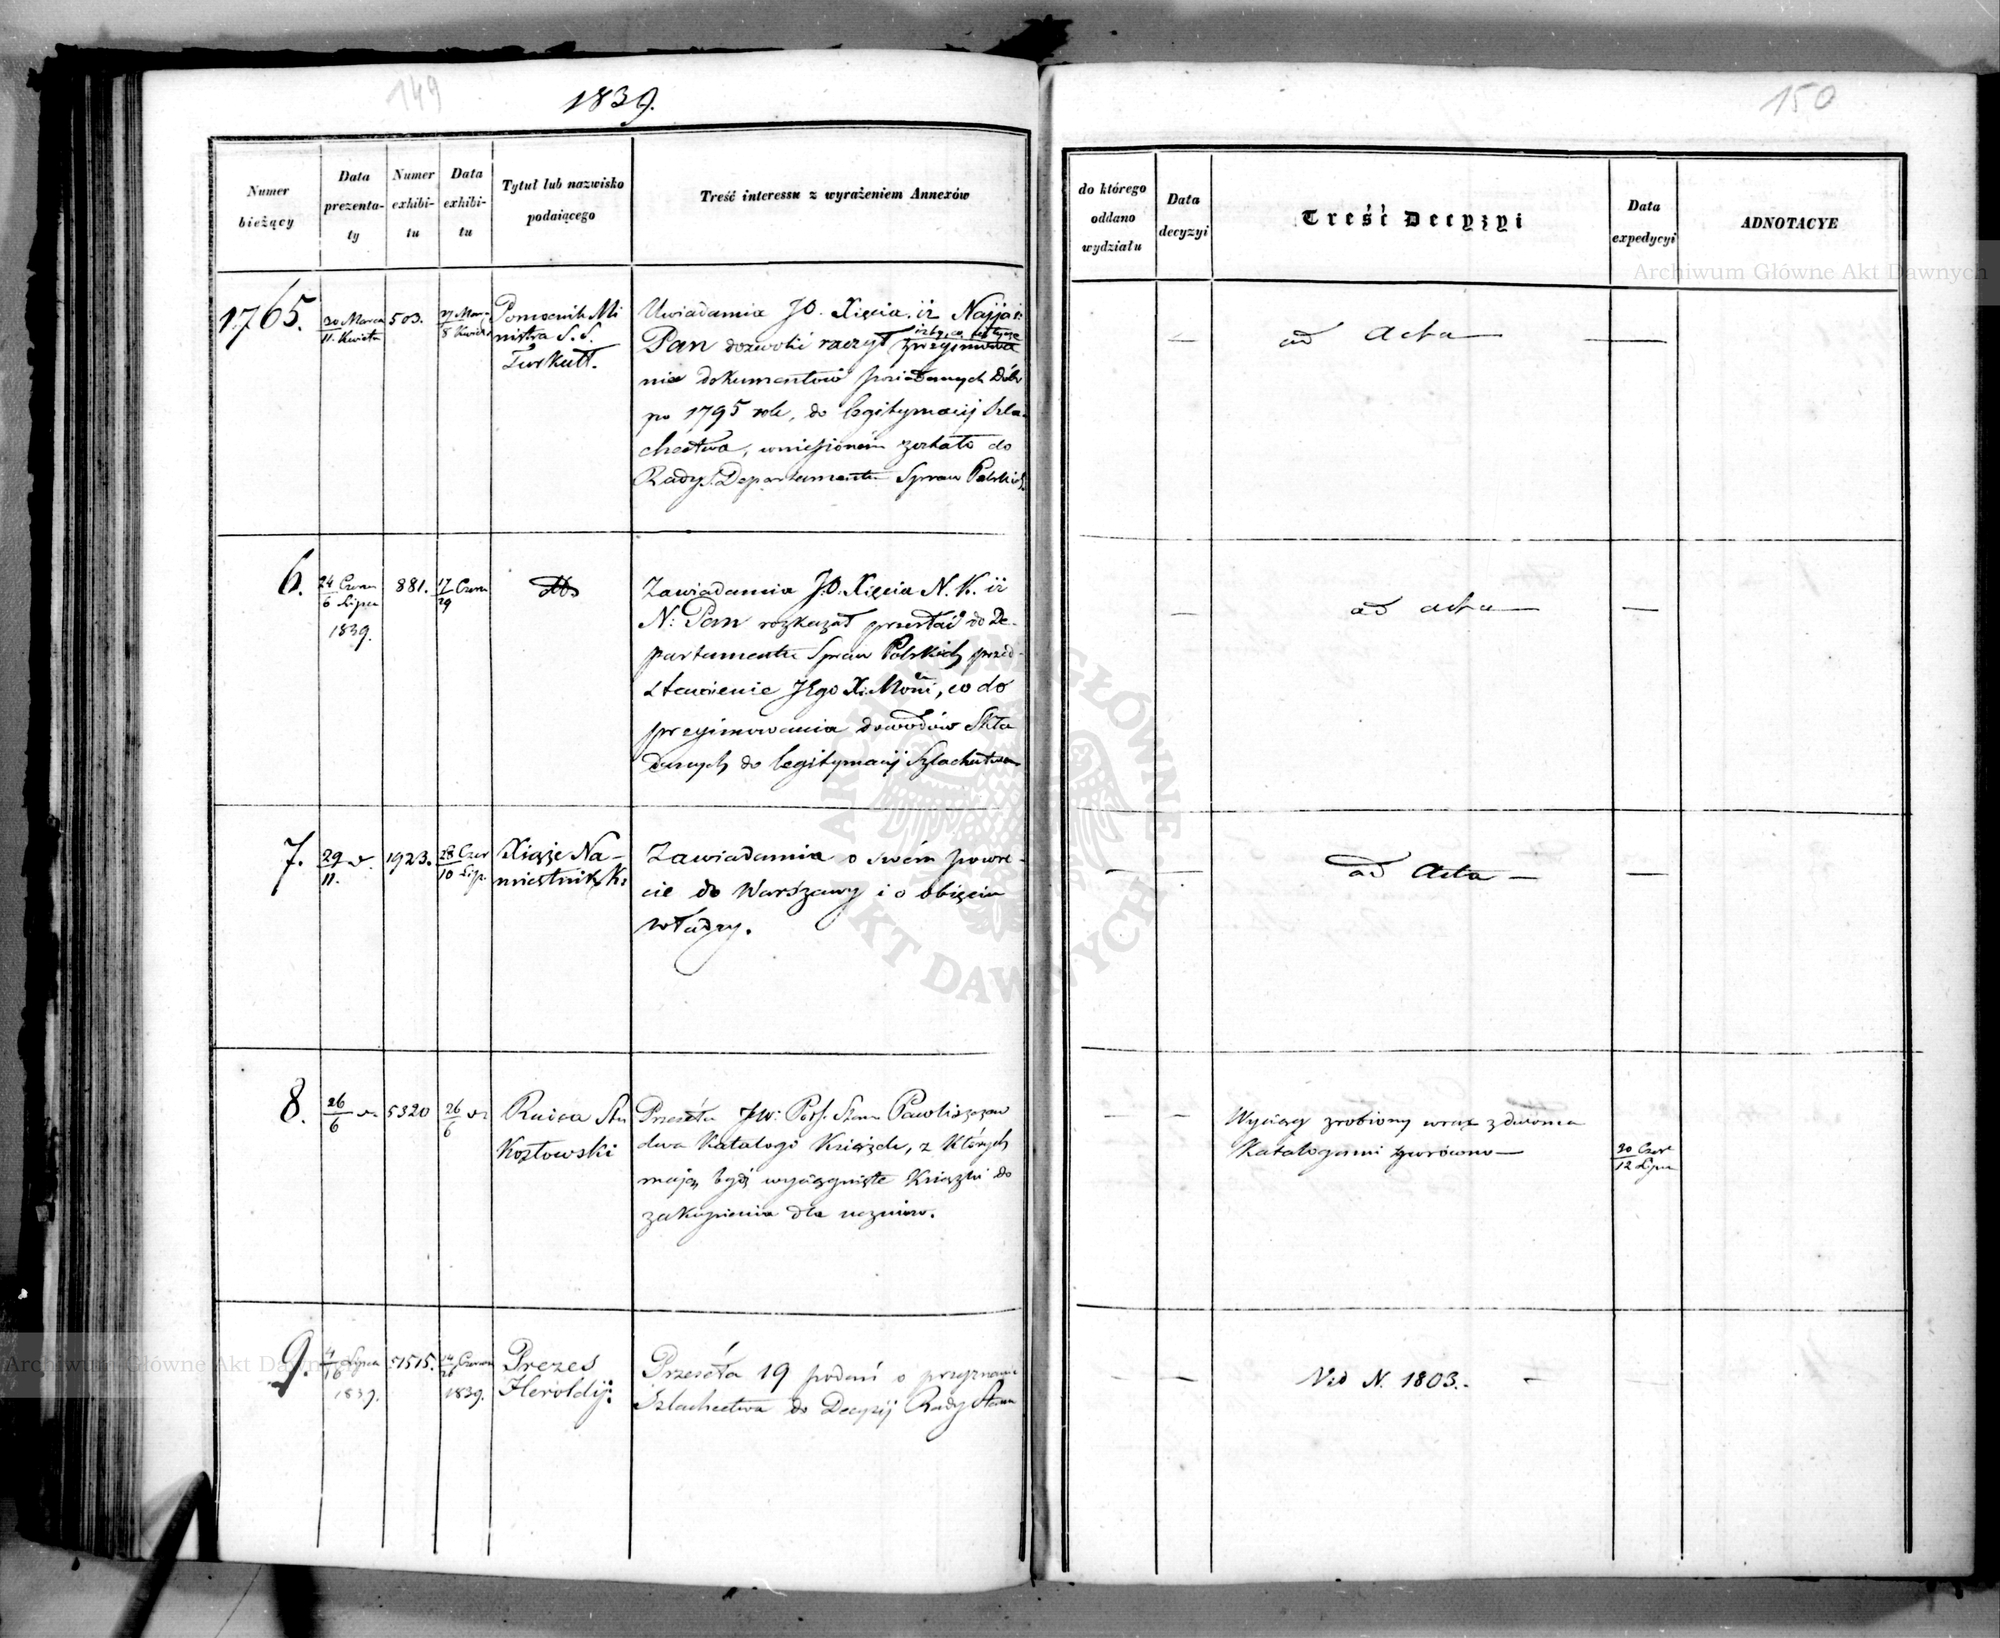 149
1839.
Numer bieżący
Data prezenta-ty
Numer exhibi-tu
Data exhibi-tu
Tytuł lub nazwisko podaiącego
Treść interessu z wyrażeniem Annexów
1765.
30 Marca
11. Kwiet
503.
27 Mar
8 Kwiet
Pomocnik Mi
nistra S. S.
Turkułł.
Uwiadamia JO. Xięcia, iż Najja:
Pan dozwolić raczył
nie dokumentów posiadanych Dóbr
po 1795 rok, do legitymacij Szla-
chectwa, wniesionem zostało do
Rady: Departamentu Spraw Polskich
6.
24 Czerw
6 Lipca
1839.
881.
17 Czerw
29
Zawiadamia J.O. Xięcia N. K. iż
N: Pan rozkazał przesłać do De-
partamentu Spraw Polskich przed-
stawienie JEgo X. Mości, co do
przyimowania dowodów Skła
danych do legitymacij Szlachectwa
7.
29
11.
1923.
28 Czer
10 Lip.
Xiąże Na-
miestnik K:
Zawiadamia o swém powro-
cie do Warszawy i o obięciu
władzy.
8.
26
6
5320
26
6
Radca Stu
Kozłowski
Przesyła JW: Pawliszczew
dwa Katalogi Książek, z których
mają być wyciągnięte Książki do
zakupienia dla uczniów.
9.
4 Lipca
16
1839.
51515.
14 Czerwca
26
1839.
Prezes
Heroldyi:
Przesyła 19 podań o przyznanie
Szlachectwa do Decyzij Rady Stanu
150
do którego oddano wydziału
Data decyzyi
Treść Decyzyi
Data expedycyi
ADNOTACYE
ad Acta
ad acta
ad Acta
Wyciąg zrobiony wraz z dwoma
Katalogami zwrócono
30 Czer
12 Lipca
Vid N. 1803.
Archiwum Główne Akt Dawnych
Archiwum Główne Akt Dawnych
ARCHIWUM GŁÓWNE AKT DAWNYCH